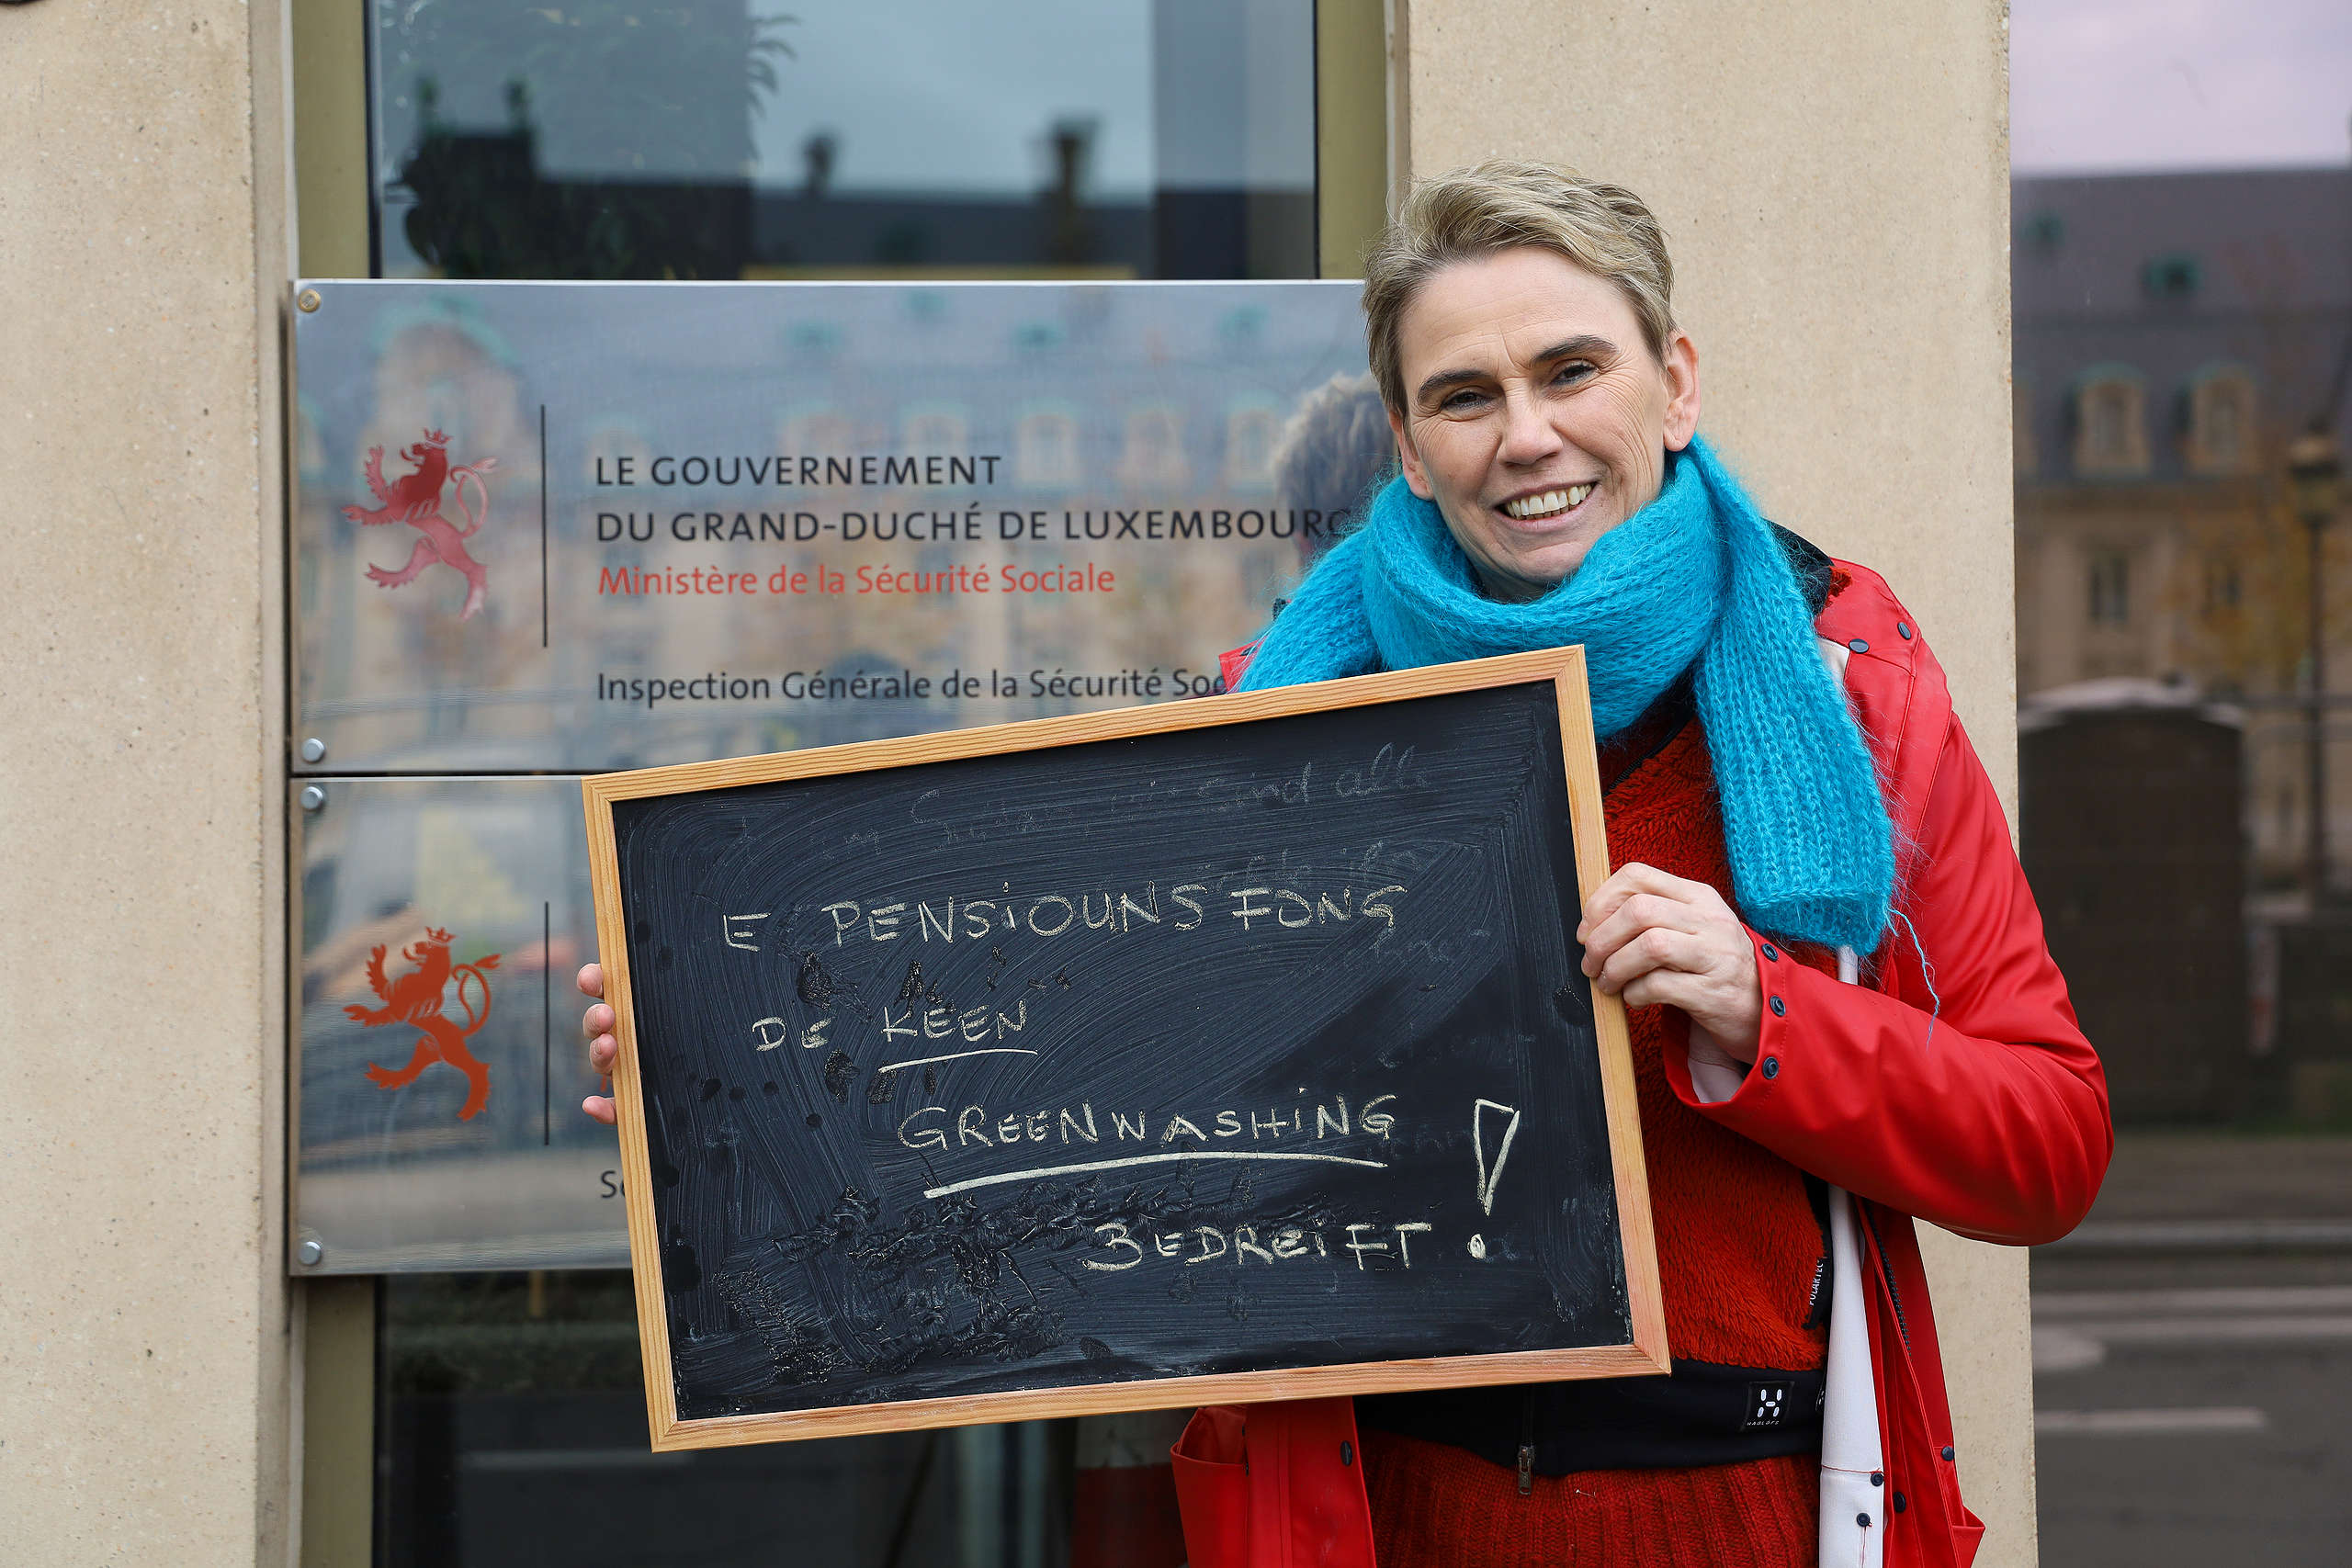 LE GOUVERNEMENT
DU GRAND-DUCHÉ DE LUXEMBOURG
Ministère de la Sécurité Sociale
Inspection Générale de la Sécurité
sind all
E PENSIOUNSFONG
DE KEEN
GREENWASHING
BEDREIFT !
POLARTEC
HAGLÖFS